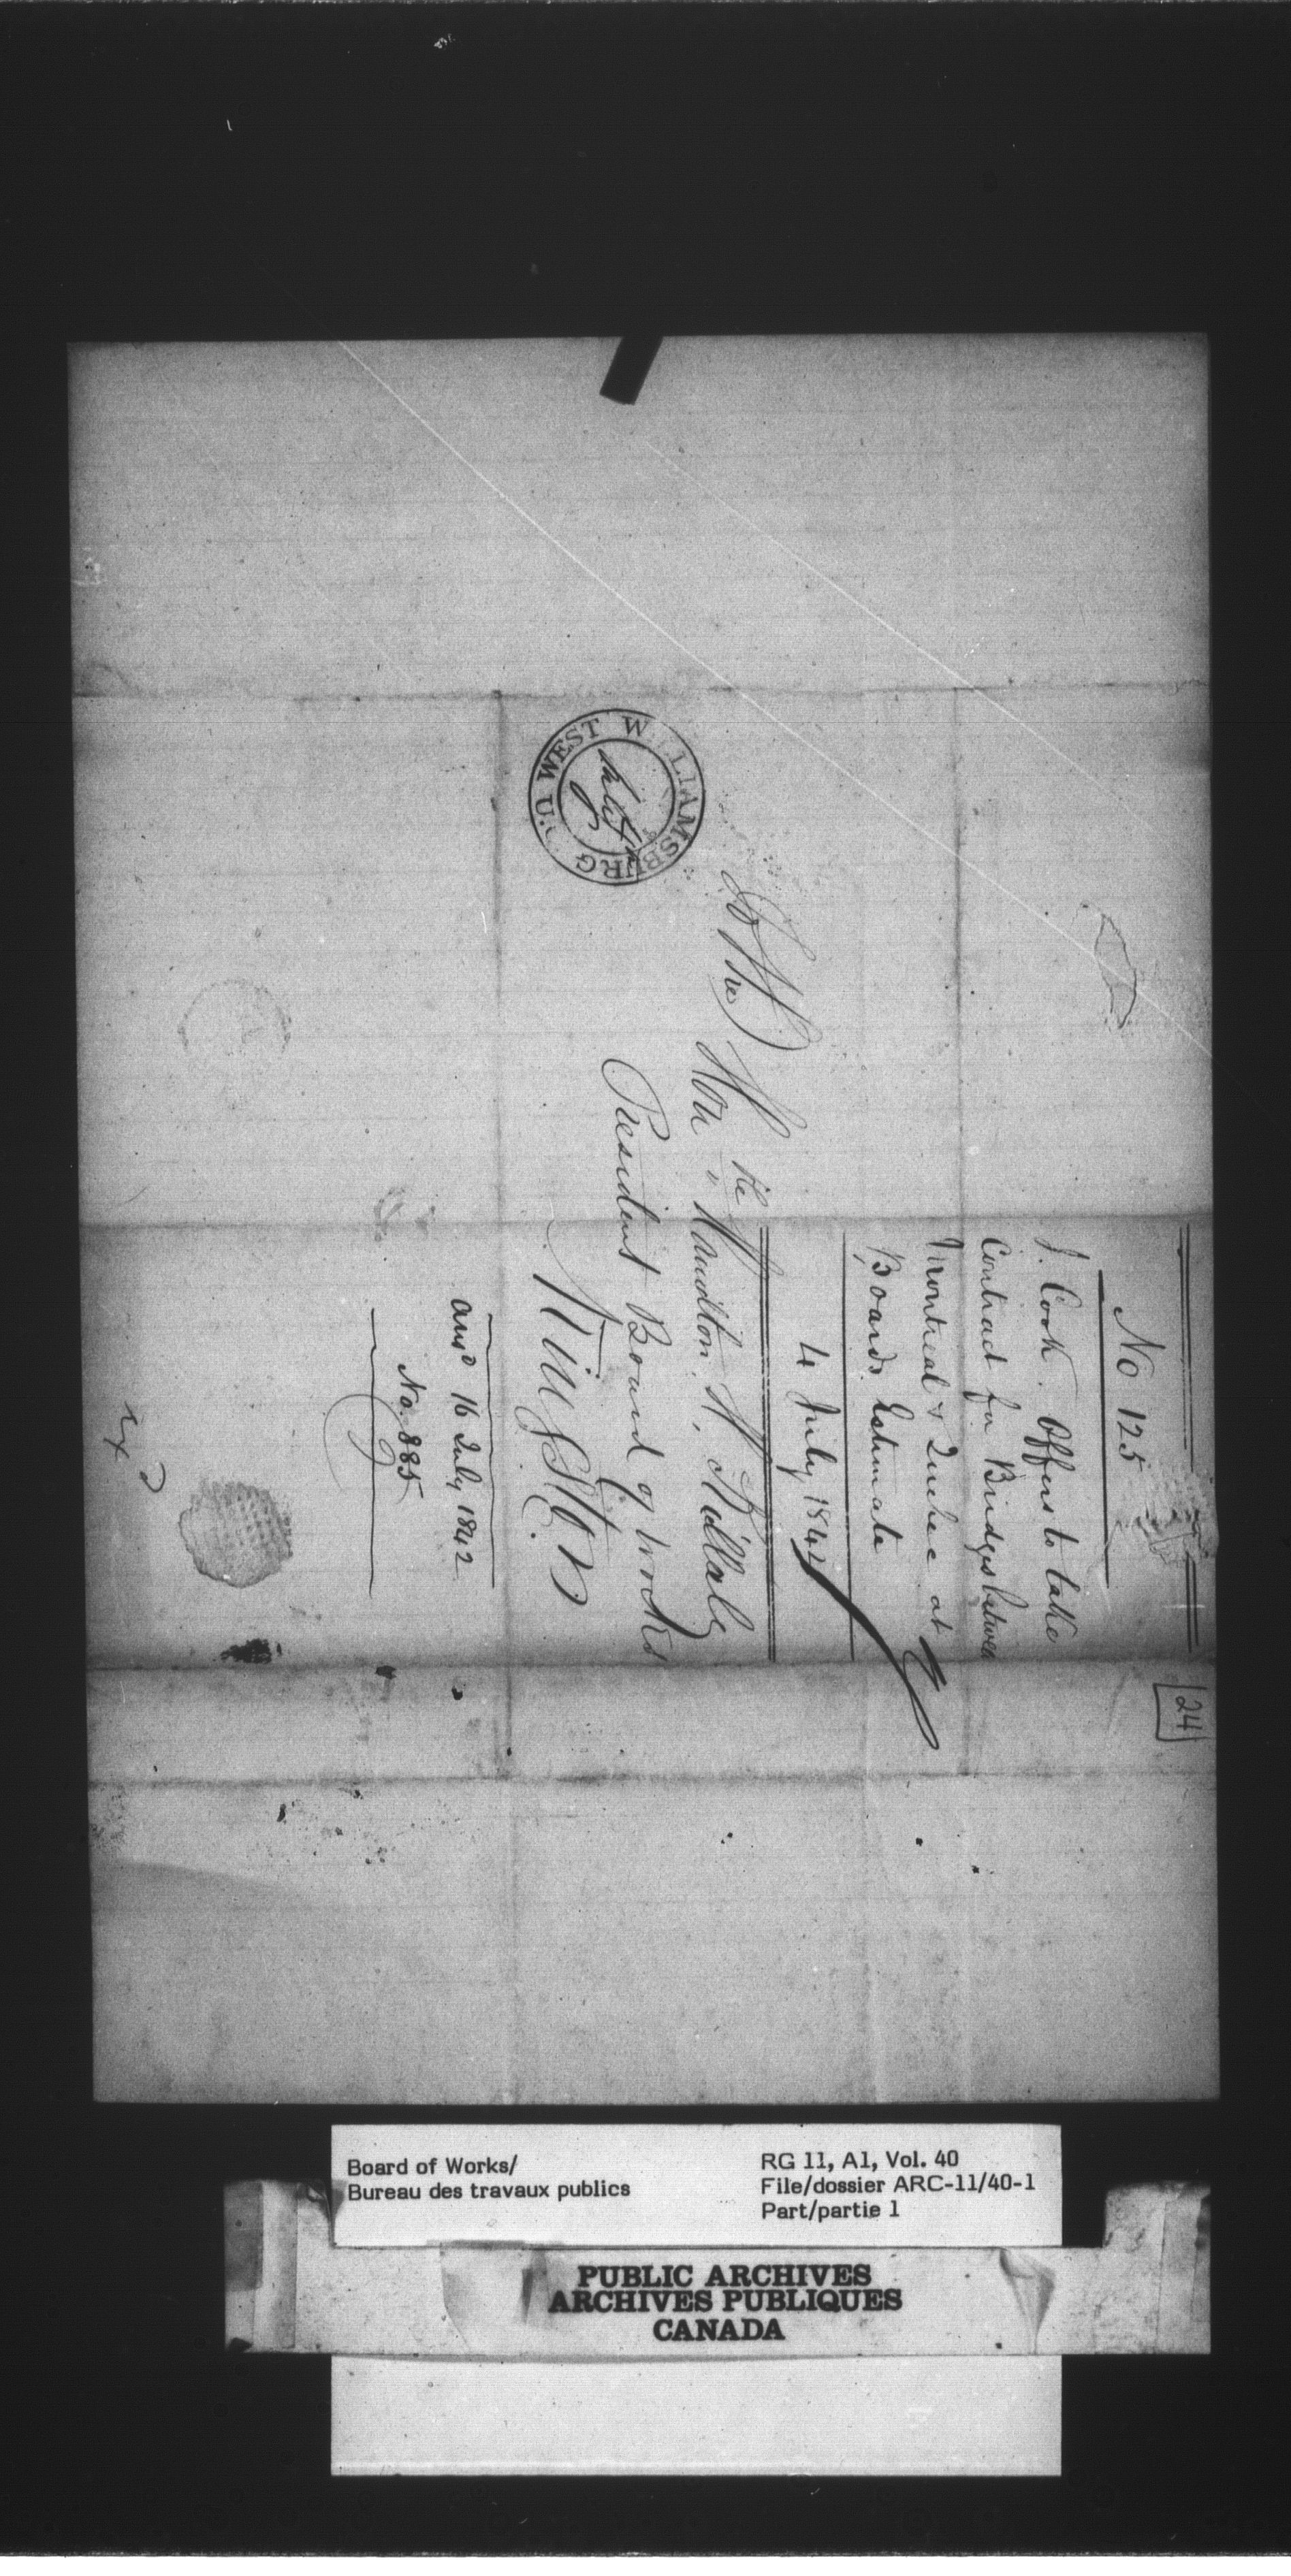 24
No 125
J. Cook. Offers to take
Contract for Bridges between
Montreal & Quebec at
Boards Estimate
4 July 1842
To The Honble Hamilton H. Killaly
President Board of Works
Kingston
WEST WILLIAMSBURG U.
July
ansd 16 July 1842
No. 885
Board of Works/
Bureau des travaux publics
RG 11, A1, Vol. 40
File/dossier ARC-11/40-1
Part/partie 1
PUBLIC ARCHIVES
ARCHIVES PUBLIQUES
CANADA